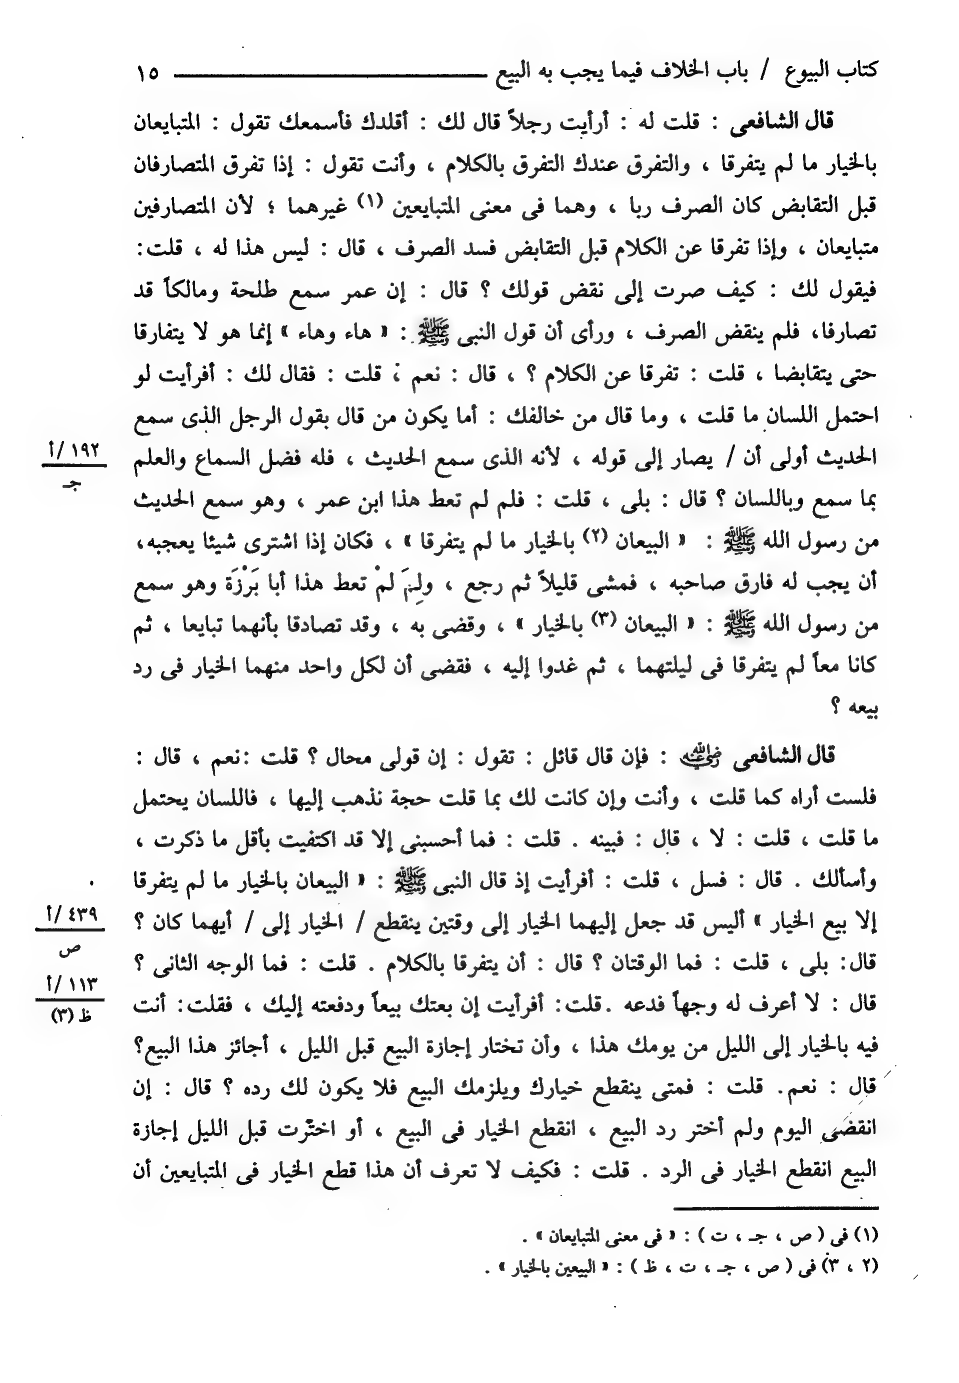 كتاب البيوع / باب الخلاف فيما يجب به البيع ــــــــــــ ١٥
قال الشافعى : قلت له : أرأيت رجلاً قال لك : أقلدك فأسمعك تقول : المتبايعان
بالخيار ما لم يتفرقا ، والتفرق عندك التفرق بالكلام ، وأنت تقول : إذا تفرق المتصارفان
قبل التقابض كان الصرف ربا ، وهما فى معنى المتبايعين (١) غيرهما ؛ لأن المتصارفين
متبايعان ، وإذا تفرقا عن الكلام قبل التقابض فسد الصرف ، قال : ليس هذا له ، قلت :
فيقول لك : كيف صرت إلى نقض قولك ؟ قال : إن عمر سمع طلحة ومالكاً قد
تصارفا، فلم ينقض الصرف ، ورأى أن قول النبى ﷺ : « هاء وهاء » إنما هو لا يتفارقا
حتى يتقابضا ، قلت : تفرقا عن الكلام ؟ ، قال : نعم ، قلت : فقال لك : أفرأيت لو
احتمل اللسان ما قلت ، وما قال من خالفك : أما يكون من قال بقول الرجل الذى سمع
الحديث أولى أن / يصار إلى قوله ، لأنه الذى سمع الحديث ، فله فضل السماع والعلم
١٩٢ /أ
جـ
بما سمع وباللسان ؟ قال : بلى ، قلت : فلم لم تعط هذا ابن عمر ، وهو سمع الحديث
من رسول الله ﷺ : « البيعان (٢) بالخيار ما لم يتفرقا » ، فكان إذا اشترى شيئا يعجبه،
أن يجب له فارق صاحبه ، فمشى قليلاً ثم رجع ، ولِمَ لمْ تعط هذا أبا بَرْزَة وهو سمع
من رسول الله ﷺ : « البيعان (٣) بالخيار » ، وقضى به ، وقد تصادقا بأنهما تبايعا ، ثم
كانا معاً لم يتفرقا فى ليلتهما ، ثم غدوا إليه ، فقضى أن لكل واحد منهما الخيار فى رد
بيعه ؟
قال الشافعى رضي الله عنه : فإن قال قائل : تقول : إن قولى محال ؟ قلت :نعم ، قال :
فلست أراه كما قلت ، وأنت وإن كانت لك بما قلت حجة نذهب إليها ، فاللسان يحتمل
ما قلت ، قلت : لا ، قال : فبينه . قلت : فما أحسبنى إلا قد اكتفيت بأقل ما ذكرت ،
وأسألك . قال : فسل ، قلت : أفرأيت إذ قال النبى ﷺ : « البيعان بالخيار ما لم يتفرقا
إلا بيع الخيار » أليس قد جعل إليهما الخيار إلى وقتين ينقطع / الخيار إلى / أيهما كان ؟
٤٣٩ /أ
ص
قال: بلى ، قلت : فما الوقتان ؟ قال : أن يتفرقا بالكلام . قلت : فما الوجه الثانى ؟
١١٣ /أ
ظ (٣)
قال : لا أعرف له وجهاً فدعه .قلت: أفرأيت إن بعتك بيعاً ودفعته إليك ، فقلت: أنت
فيه بالخيار إلى الليل من يومك هذا ، وأن تختار إجازة البيع قبل الليل ، أجائز هذا البيع؟
قال : نعم. قلت : فمتى ينقطع خيارك ويلزمك البيع فلا يكون لك رده ؟ قال : إن
انقضى اليوم ولم أختر رد البيع ، انقطع الخيار فى البيع ، أو اخترت قبل الليل إجازة
البيع انقطع الخيار فى الرد . قلت : فكيف لا تعرف أن هذا قطع الخيار فى المتبايعين أن
(١) فى ( ص ، جـ ، ت ) : « فى معنى المتبايعان » .
(٢ ، ٣) فى ( ص ، جـ ، ت ، ظ ) : « البيعين بالخيار » .